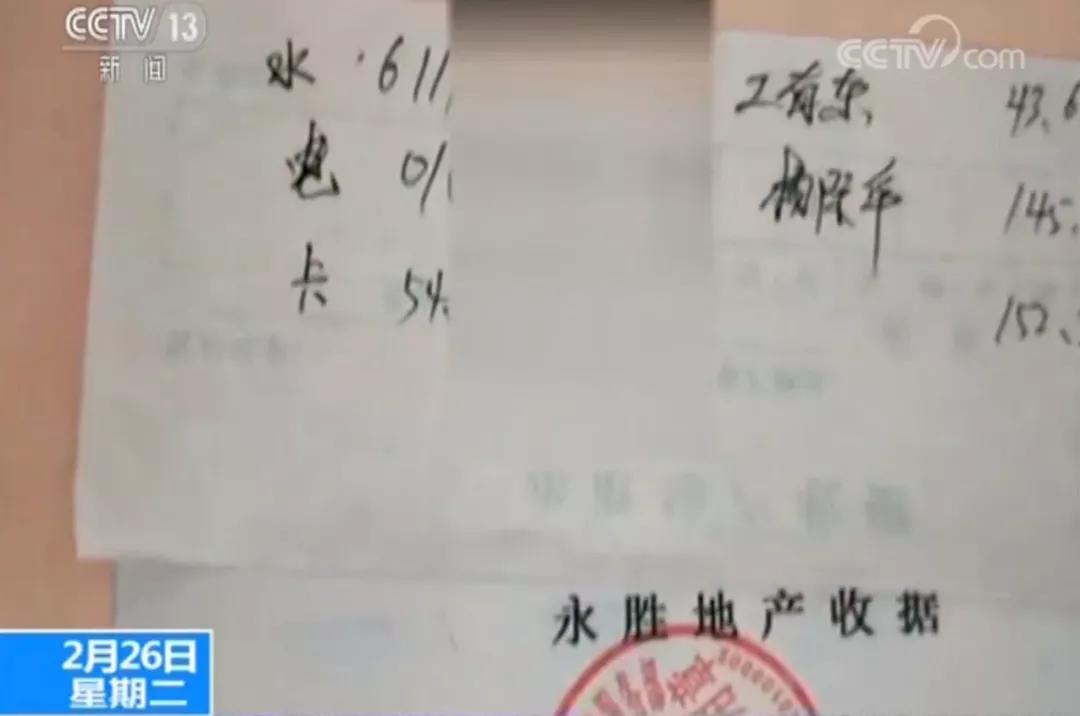 CCTV 13
新闻
CCTV.com
水 611
电 01
卡 54.
43.6
145.
152.
永胜地产收据
2月26日
星期二